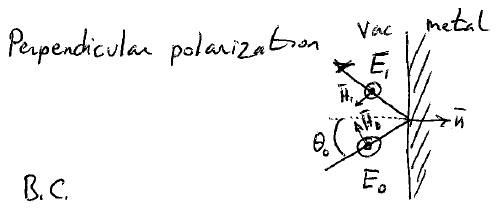 Perpendicular polarization
Vac metal
E₁
H̄₁
H̄₀
n̄
θ₀
E₀
B.C.